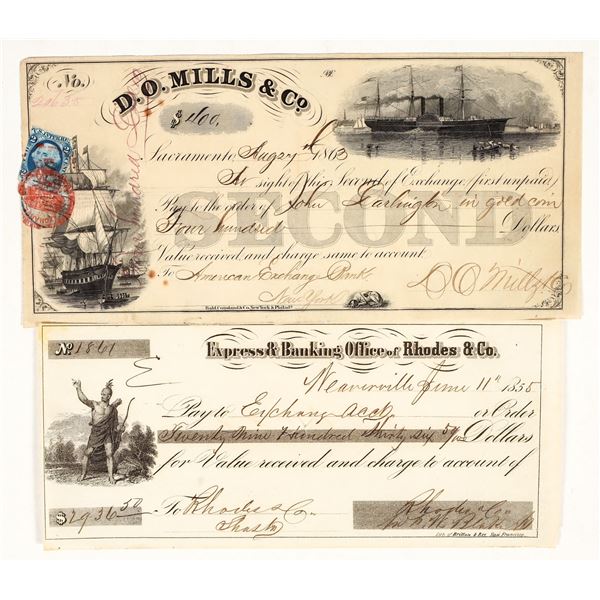 No.
D. O. MILLS & Co.
$400.
Sacramento Augt 27th 1863
At sight of this Second of Exchange (first unpaid)
Pay to the order of John Darlington in gold coin
Four hundred Dollars
SECOND
Value received, and charge same to account
To American Exchange Bank D O Mills & Co
New York
Bald Cousland & Co. New York & Philada.
No 1861 Express & Banking Office of Rhodes & Co.
Weaverville June 11th 1855
Pay to Exchange acct or Order
Twenty Nine Hundred Thirty six 50/100 Dollars
for Value received and charge to account of
$2936 50 To Rhodes & Co. Rhodes & Co
Shasta
Lith. of Britton & Rey San Francisco.